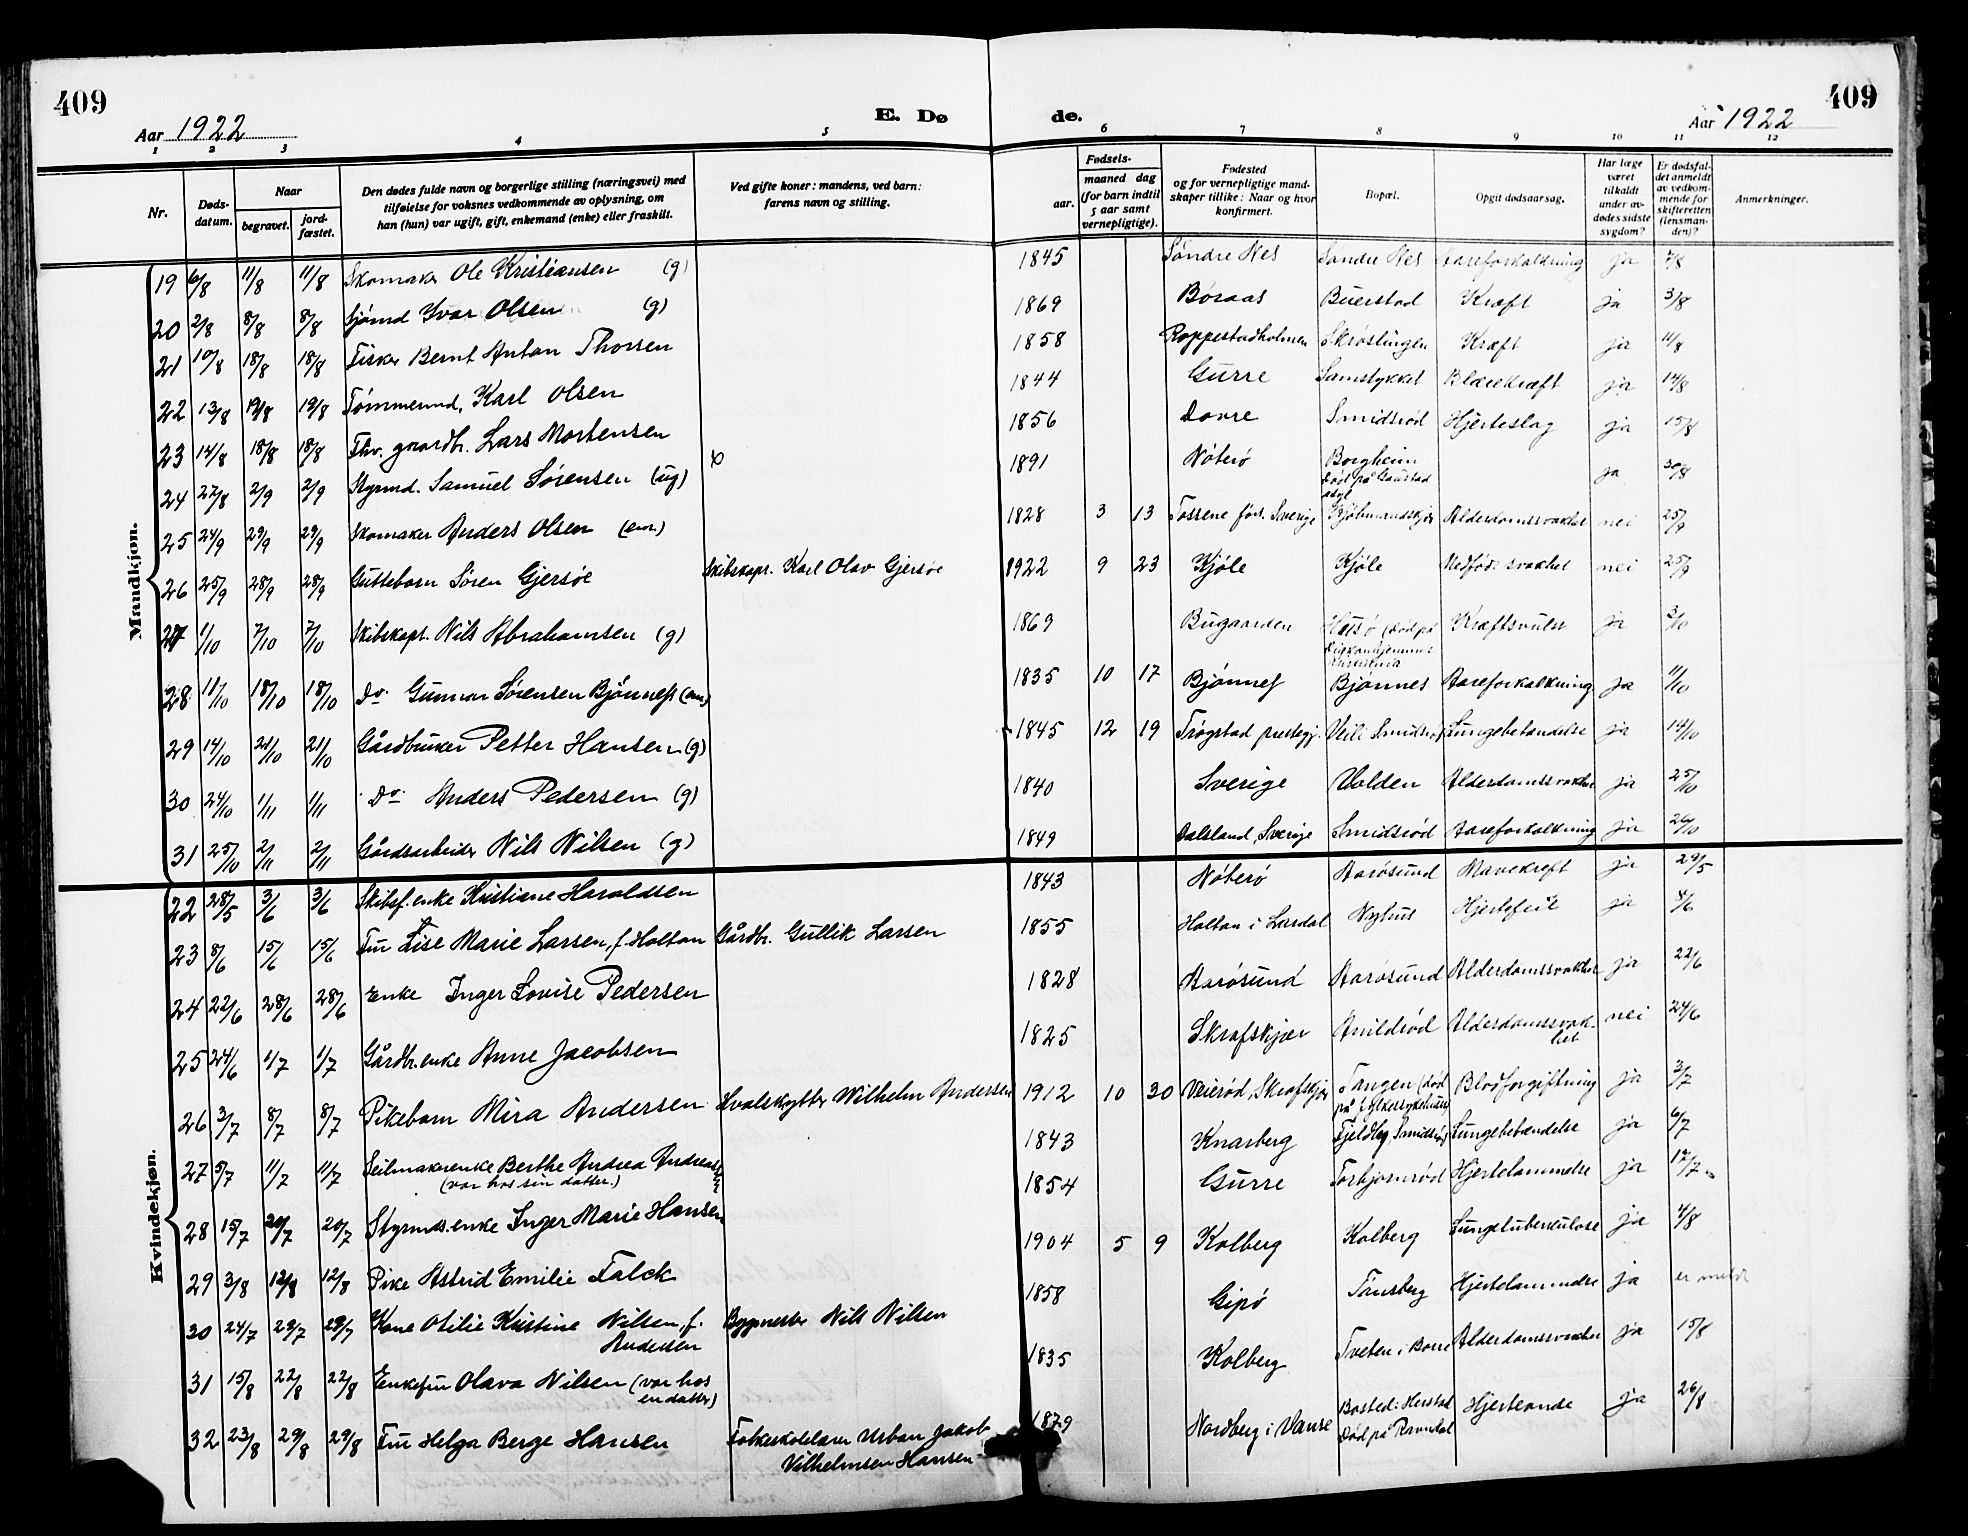 409
Aar 1922
E. Dø
de.
Aar 1922
409
1 2 3 4 5 6 7 8 9 10 11 12
Nr.
Døds-
datum.
Naar
begravet.
jord-
fæstet.
Den dødes fulde navn og borgerlige stilling (næringsvei) med
tilføielse for voksnes vedkommende av oplysning, om
han (hun) var ugift, gift, enkemand (enke) eller fraskilt.
Ved gifte koner: mandens, ved barn:
farens navn og stilling.
Fødsels-
aar.
maaned dag
(for barn indtil
5 aar samt
vernepligtige).
Fødested
og for vernepligtige mand-
skaper tillike: Naar og hvor
konfirmert.
Bopæl.
Opgit dødsaarsag.
Har læge
været
tilkaldt
under av-
dødes sidste
sygdom?
Er dødsfal-
det anmeldt
av vedkom-
mende for
skifteretten
(lensman-
den)?
Anmerkninger.
Mandkjøn.
19 6/8 11/8 11/8 Skomaker Ole Kristiansen (g) 1845 Søndre Nes Søndre Nes Aareforkalkning ja 7/8
20 2/8 8/8 8/8 Sjømd Ivar Olsen (g) 1869 Böraas Buerstad Kræft ja 3/8
21 10/8 18/8 18/8 Fisker Bernt Anton Thorsen 1858 Roppestadholmen Skrøslingen Kræft ja 11/8
22 13/8 19/8 19/8 Tømmermd. Karl Olsen 1844 Gurre Samstykket Blærekræft ja 14/8
23 14/8 18/8 18/8 Fhv. gaardbr. Lars Mortensen 1856 Dovre Smidsrød Hjerteslag ja 15/8
24 22/8 2/9 2/9 Styrmd. Samuel Sørensen (ug) 1891 Nøterø Borgheim
Død på Gaustad
asyl ja 30/8
25 24/9 29/9 29/9 Skomaker Anders Olsen (em.) 1828 3 13 Tossene fors. Sverige Kjølmandskjær Alderdomssvakhet nei 25/9
26 25/9 28/9 28/9 Guttebarn Søren Gjersøe Skibskapt. Karl Olav Gjersøe 1922 9 23 Kjøle Kjøle Medfødt svakhet nei 25/9
27 1/10 7/10 7/10 Skibskapt. Nils Abrahamsen (g) 1869 Bugaarden Husø (død på
Diakonhjemmet
Kristiania Kræftsvulst ja 3/10
28 11/10 18/10 18/10 Do. Gunnar Sørensen Bjønnes (em) 1835 10 17 Bjønnes Bjønnes Aareforkalkning ja 11/10
29 14/10 21/10 21/10 Gårdbruker Petter Hansen (g) 1845 12 19 Trøgstad prestegj. Smidsrød Lungebetændelse ja 14/10
30 24/10 1/11 1/11 Do. Anders Pedersen (g) 1840 Sverige Volden Alderdomssvakhet ja 25/10
31 25/10 2/11 2/11 Gårdsarbeider Nils Nilsen (g) 1849 Dalsland, Sverige Smidsrød Aareforkalkning ja 26/10
Kvindekjøn.
22 28/5 3/6 3/6 Skibsf. enke Kristiane Haraldsen 1843 Nøterø Aarøsund Mavekræft ja 29/5
23 8/6 15/6 15/6 Fru Lise Marie Larsen, f. Holtan Gårdbr. Gullik Larsen 1855 Holtan i Lardal Nyhus Hjertefeil ja 4/6
24 22/6 28/6 28/6 Enke Inger Lovise Pedersen 1828 Aarøsund Aarøsund Alderdomssvakhet ja 22/6
25 24/6 1/7 1/7 Gårdbr. enke Anne Jacobsen 1825 Skrafskjær Arildrød Alderdomssvak-
het nei 24/6
26 3/7 8/7 8/7 Pikebarn Mira Andersen Hvalskytter Wilhelm Andersen 1912 10 30 Veierød, Skrafskjær Tangen (død
på fylkessykehuset Blodforgiftning ja 3/7
27 5/7 11/7 11/7 Seilmakerenke Berthe Andrea Andreassen
(var hos sin datter.) 1843 Knarberg Fjeldbg, Smidsrød Lungebetændelse ja 6/7
28 15/7 20/7 20/7 Styrmds. enke Inger Marie Hansen 1854 Gurre Torbjørnrød Hjertelammelse ja 17/7
29 3/8 12/8 12/8 Pike Astrid Emilie Falck 1904 5 9 Kolberg Kolberg Lungetuberkulose ja 4/8
30 24/7 29/7 29/7 Kone Otilie Kristine Nilsen, f.
Andersen Bygmester Nils Nilsen 1858 Gipø Tønsberg Hjertelammelse ja er meldt
31 15/8 22/8 22/8 Enkefru Olava Nilsen (var hos
en datter) 1835 Kolberg Tveten i Borre Alderdomssvakhet ja 15/8
32 23/8 29/8 29/8 Fru Helga Berge Hansen Folkeskolelærer Urban Jakob
Vilhelmsen Hansen 1879 Nordberg i Vanse Bosted: Herstad
Død på Ravndal Hjerteonde ja 26/8